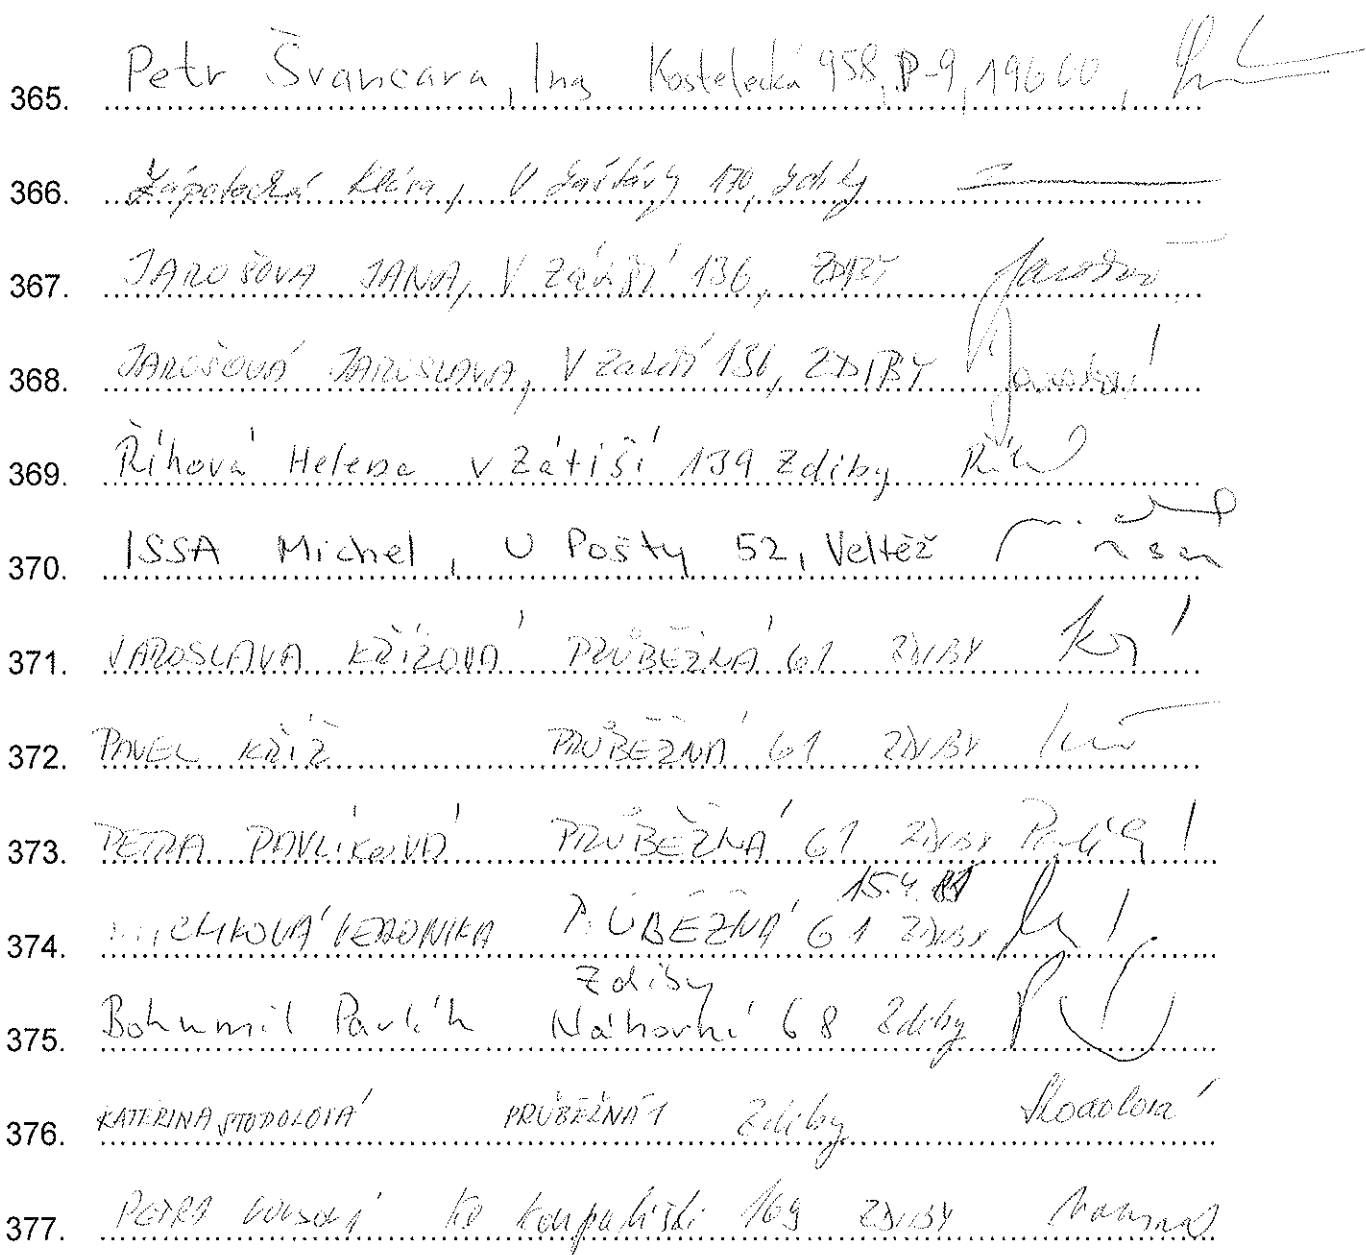 365. Petr Švancara, Ing Kostelecká 958, P-9, 19600,
366. Klára, V 170, Zdiby
367. JAROŠOVA JANA, V Zátiší 136, ZDIBY
368. JAROŠOVÁ JAROSLAVA, V Zátiší 136, ZDIBY
369. Říhová Helena v Zátiší 139 Zdiby
370. ISSA Michel, U Pošty 52, Veltěž
371. JAROSLAVA KŘÍŽOVÁ PRŮBĚŽNÁ 61 ZDIBY
372. PAVEL KŘÍŽ PRŮBĚŽNÁ 61 ZDIBY
373. PETRA PAVLÍKOVÁ PRŮBĚŽNÁ 61 ZDIBY
15.4.
374. VERONIKA PRŮBĚŽNÁ 61 ZDIBY
Zdiby
375. Bohumil Pavlík Náhorní 68 Zdiby
376. KATEŘINA STODOLOVÁ PRŮBĚŽNÁ 1 Zdiby Stodolová
377. PETRA Ke Koupališti 169 ZDIBY